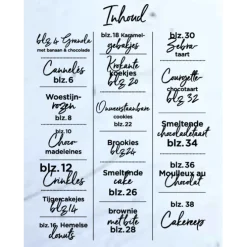 Inhoud
blz 4 Granola
met banaan & chocolade
Cannelés
blz.6
Woestijn-
rozen
blz.8
blz.10
Choco-
madeleines
blz.12
Crinkles
Tijgercakejes
blz 14
blz.16 Hemelse
donuts
blz.18 Karamel-
gebakjes
Krokante
koekjes
blz 20
Onweerstaanbare
cookies
blz.22
Brookies
blz 24
Smeltende
cake
blz.26
brownie
met bite
blz.28
blz.30
Zebra-
taart
Courgette-
chocotaart
blz 32
Smeltende
chocoladetaart
blz.34
blz.36
Moulleux au
Chocolat
blz.38
Cakereep